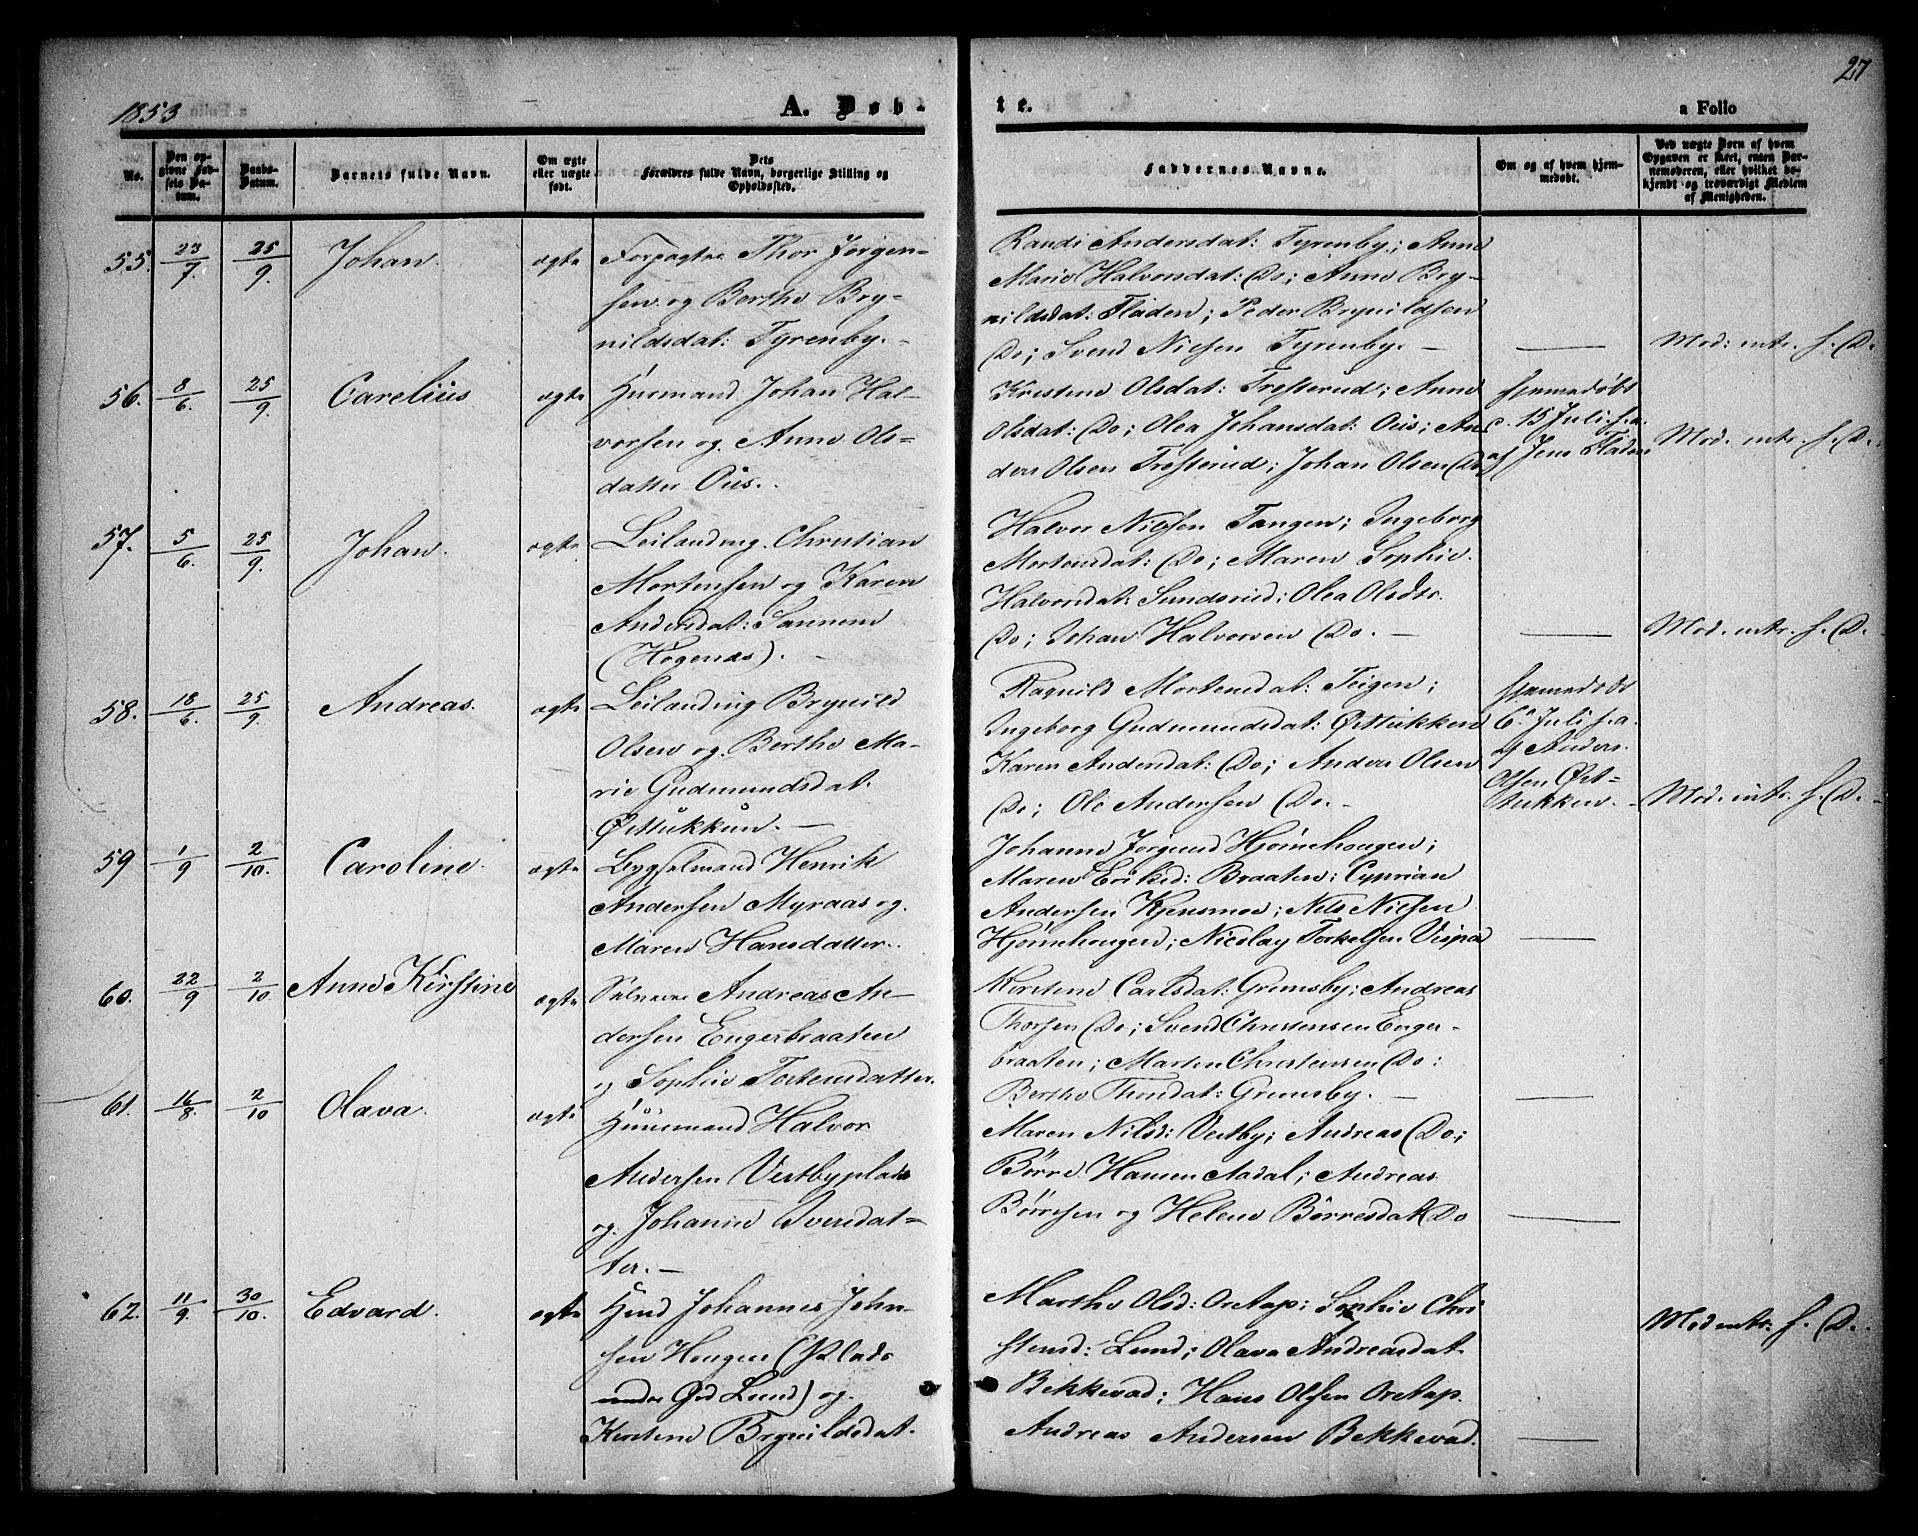 1853
A. Døb-
te.
a Folio
27
No.
Den op-
givne Fød-
sels Da-
tum.
Daabs-
Datum.
Barnets fulde Navn.
Om ægte
eller uægte
født.
Dets
Forældres fulde Navn, borgerlige Stilling og
Opholdssted.
Faddernes Navne.
Om og af hvem hjem-
medøbt.
Ved uægte Børn af hvem
Opgaven er skeet, enten Bar-
nemoderen, eller hvilket be-
kjendt og troværdigt Medlem
af Menigheden.
55. 23/7. 25/9. Johan. ægte
Forpagter Thor Jørgen-
sen og Berthe Bry-
nildsdat: Tyrenby. -
Randi Andersdat: Tyrenby; Anne
Marie Halvorsdat: Do; Anne Bry-
nildsdat: Fladen; Peder Brynildsen
Do; Svend Nielsen Tyrenby. -
Mod: intr. s. D.
56. 8/6. 25/9. Carelius ægte
Huusmand Johan Hal-
vorsen og Anne Ols-
datter Ous.
Kristine Olsdat: Trøsterud; Anne
Olsdat: Do; Olea Johansdat: Ous; An-
ders Olsen Trøsterud; Johan Olsen Do
Hjemmedøbt
d. 15 Juli s. a.
af Jens Fladen
Mod. intr. s. D.
57. 5/6. 25/9. Johan. ægte
Leilænding Christian
Mortensen og Karen
Andersdat: Sannem
(Høgenæs). -
Halvor Nilsen Tangen; Ingeborg
Mortensdat: Do; Maren Sophie
Halvorsdat: Sundsrud; Olea Olsdtr.
Do; Johan Halvorsen Do. -
Mod. intr. s. D. -
58. 18/6. 25/9. Andreas. ægte
Leilænding Brynild
Olsen og Berthe Ma-
rie Gudmundsdat.
Østtukkun. -
Ragnild Mortensdat: Teigen;
Ingeborg Gudmundsdat: Østtukken
Karen Andersdat: Do; Anders Olsen
Do; Ole Andersen Do. -
Hjemmedøbt
6. Juli s. a.
af Anders
Olsen Øst-
tukken. -
Mod. intr. s. D. -
59 1/9 2/10. Caroline. ægte
Bygselmand Henrik
Andersen Myraas og.
Maren Hansdatter.
Johanne Jørgensd Hjørnehougen;
Maren Eriksd: Braaten; Cyprian
Andersen Kjensmoe; Nils Nilsen
Hjørnehougen; Nicolay Torkelsen Vispas
60. 22/9 2/10 Anne Kirstine ægte
Andreas An-
dersen Engerbraaten
og Sophie Torkensdatter.
Kirstine Carlsdat: Grimsby; Andreas
Thorsen Do; Svend Christensen Enger-
braaten; Martin Christensen Do:
Berthe Thorsdat: Grimsby. -
61. 16/8. 2/10 Olava. ægte
Huusmand Halvor
Andersen Vestbyplads
og. Johanne Iversdat-
ter. -
Maren Nilsd: Vestby; Andreas Do;
Børre Hansen Aadal; Andreas
Børresen og Helene Børresdat Do
62. 11/9. 30/10. Edvard. ægte
Hmd Johannes John-
sen Hougen (Plads
under Grd Lund) og.
Kirstine Brynildsdat.
Marthe Olsd: Oretap; Sophie Chri
stensd: Lund; Olava Andreasdat.
Bekkevad; Hans Olsen Oretap.
Andreas Andersen Bekkevad.
Mod intr: s. D.